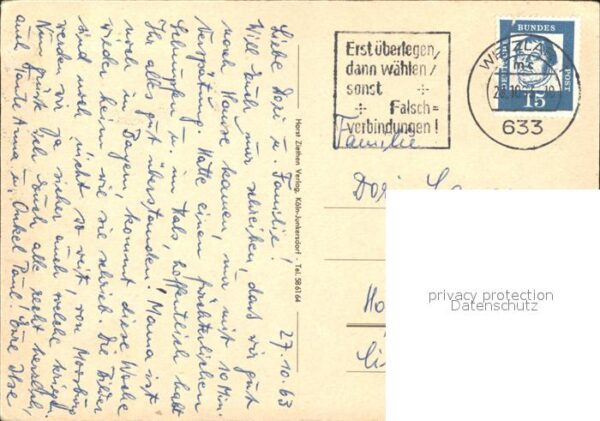 27.10.63
Liebe Dori u. Familie!
Will Euch nur schreiben, dass wir gut
nach Hause kamen, nur mit 10 Min.
Verspätung. Hatte einen fürchterlichen
Schnupfen u. im Hals, hoffentlich habt
Ihr alles gut überstanden! Mama ist
noch in Bayern, kommt diese Woche
wieder heim wie sie schrieb. Die Bilder
sind noch nicht so weit, von Moosburg
werden wir ja sicher auch welche kriegen
Nun grüsst Euch alle recht herzlich,
auch Tante Anna u. Onkel Paul Eure Ilse
Horst Ziethen Verlag, Köln-Junkersdorf - Tel. 586164
Erst überlegen,
dann wählen,
sonst
Falsch=
verbindungen!
WETZLAR
633
DEUTSCHE BUNDES POST
15
Familie
Dori
privacy protection
Datenschutz